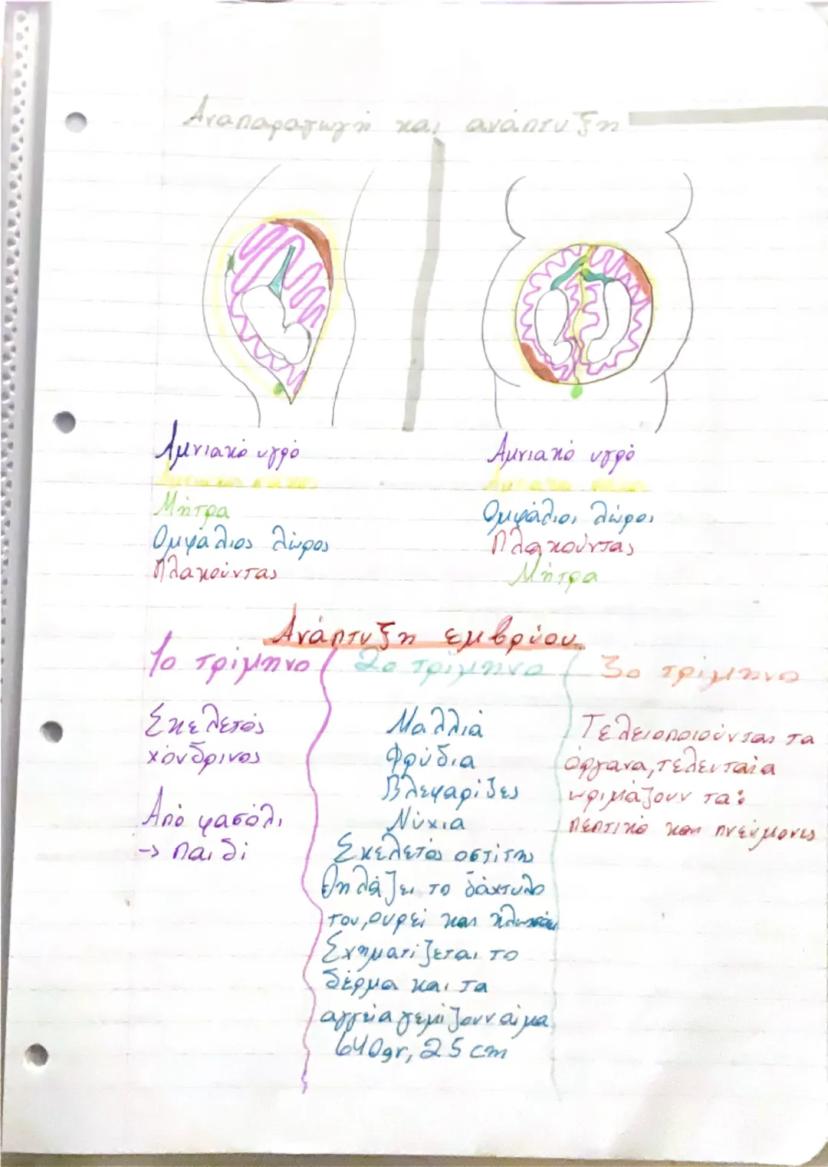 Αναπαραγωγή και ανάπτυξη
Αμνιακό υγρό
Μήτρα
Ομφάλιος λώρος
Πλακούντας
Αμνιακό υγρό
Ομφάλιοι λώροι
Πλακούντας
Μήτρα
Ανάπτυξη εμβρύου
1ο τρίμηνο
Σκελετός
χόνδρινος
Από φασόλι
→ παιδί
2ο τρίμηνο
Μαλλιά
Φρύδια
Βλεφαρίδες
Νύχια
Σκελετός οστίτης
Θηλάζει το δάχτυλο
του, ουρεί και
Σχηματίζεται το
δέρμα και τα
αγγεία γεμίζουν αίμα
640gr, 25 cm
3ο τρίμηνο
Τελειοποιούνται τα
όργανα, τελευταία
ωριμάζουν τα:
πεπτικό και πνεύμονες